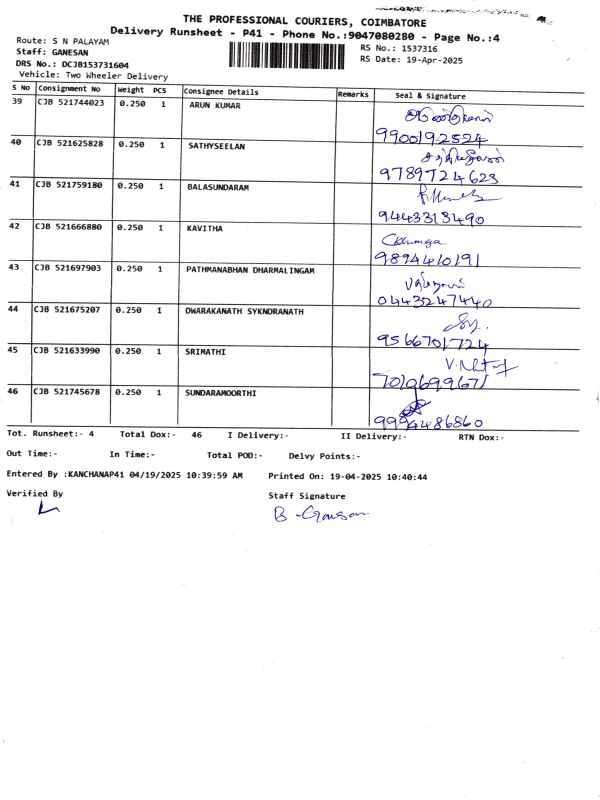 THE PROFESSIONAL COURIERS, COIMBATORE
Delivery Runsheet - P41 - Phone No.:9047080280 - Page No.:4
Route: S N PALAYAM
RS No.: 1537316
Staff: GANESAN
RS Date: 19-Apr-2025
DRS No.: DCJB153731604
Vehicle: Two Wheeler Delivery
S No Consignment No Weight PCS Consignee Details Remarks Seal & Signature
39 CJB 521744023 0.250 1 ARUN KUMAR
9900192524
40 CJB 521625828 0.250 1 SATHYSEELAN
9789724623
41 CJB 521759180 0.250 1 BALASUNDARAM
9443318490
42 CJB 521666880 0.250 1 KAVITHA
9894410191
43 CJB 521697903 0.250 1 PATHMANABHAN DHARMALINGAM
0443247440
44 CJB 521675207 0.250 1 DWARAKANATH SYKNDRANATH
9566701724
45 CJB 521633990 0.250 1 SRIMATHI
7010699671
46 CJB 521745678 0.250 1 SUNDARAMOORTHI
9994486860
Tot. Runsheet:- 4 Total Dox:- 46 I Delivery:- II Delivery:- RTN Dox:-
Out Time:- In Time:- Total POD:- Delvy Points:-
Entered By :KANCHANAP41 04/19/2025 10:39:59 AM Printed On: 19-04-2025 10:40:44
Verified By Staff Signature